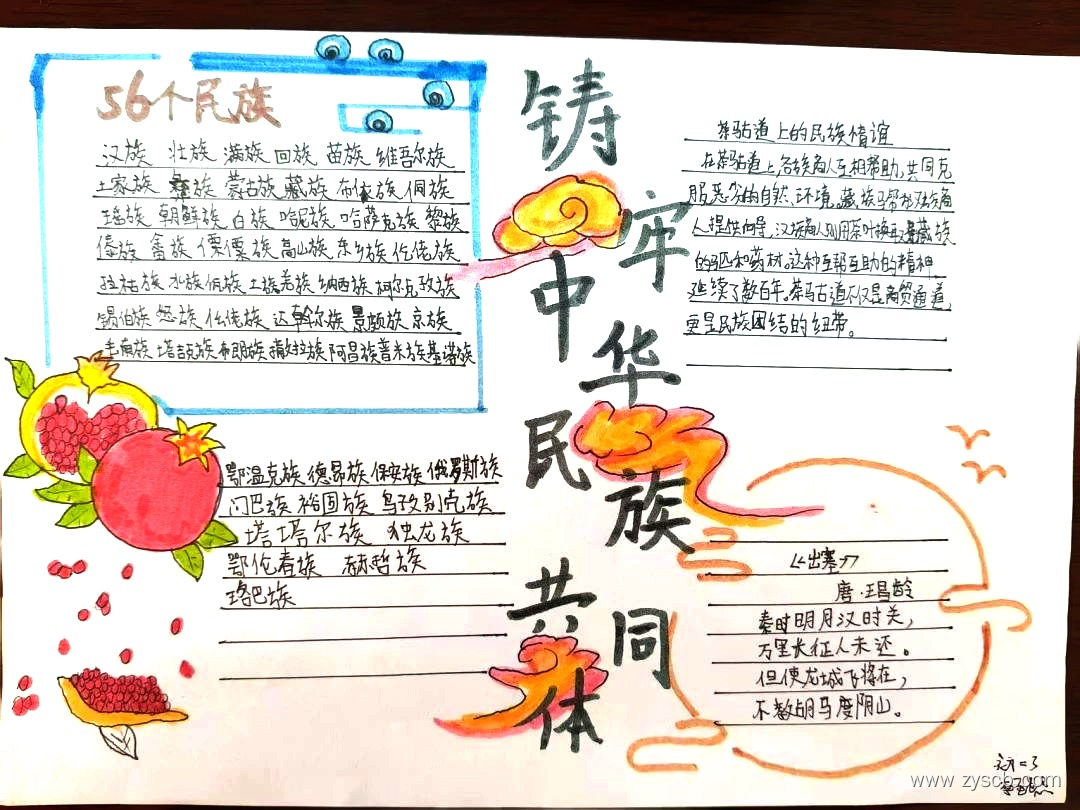 56个民族
汉族 壮族 满族 回族 苗族 维吾尔族
土家族 彝族 蒙古族 藏族 布依族 侗族
瑶族 朝鲜族 白族 哈尼族 哈萨克族 黎族
傣族 畲族 傈僳族 高山族 东乡族 仡佬族
拉祜族 水族 佤族 土族 羌族 纳西族 柯尔克孜族
锡伯族 怒族 仫佬族 达斡尔族 景颇族 京族
毛南族 塔吉克族 布朗族 撒拉族 阿昌族 普米族 基诺族
鄂温克族 德昂族 保安族 俄罗斯族
门巴族 裕固族 乌孜别克族
塔塔尔族 独龙族
鄂伦春族 赫哲族
珞巴族
铸牢中华民族共同体
茶马古道上的民族情谊
在茶马古道上,各族商人互相帮助,共同克
服恶劣的自然、环境。藏族马帮
人提供向导,汉族商人则用茶叶换取藏族
的马匹和药材。这种互帮互助的精神
延续了数百年。茶马古道不仅是商贸通道,
更是民族团结的纽带。
《出塞》
唐·王昌龄
秦时明月汉时关,
万里长征人未还。
但使龙城飞将在,
不教胡马度阴山。
www.zyscb.com